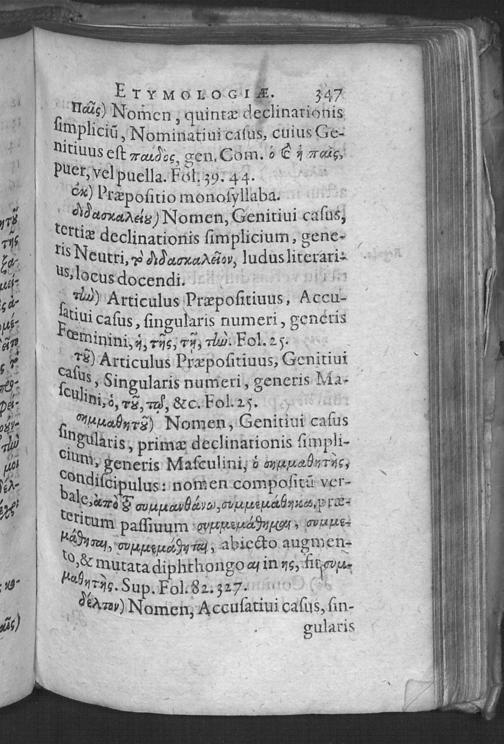 ETYMOLOGIÆ. 347
παῖς) Nomen, quintæ declinationis
simpliciū, Nominatiui casus, cuius Ge-
nitiuus est παιδὸς, gen. Com. ὁ & ἡ παῖς,
puer, vel puella. Fol. 39. 44.
ἐκ) Præpositio monosyllaba.
διδασκαλείου) Nomen, Genitiui casus,
tertiæ declinationis simplicium, gene-
ris Neutri, τὸ διδασκαλεῖον, ludus literari-
us, locus docendi.
τὴν) Articulus Præpositiuus, Accu-
satiui casus, singularis numeri, generis
Fœminini, ἡ, τῆς, τῇ, τὴν. Fol. 25.
τοῦ) Articulus Præpositiuus, Genitiui
casus, Singularis numeri, generis Ma-
sculini, ὁ, τοῦ, τῷ, &c. Fol. 25.
συμμαθητοῦ) Nomen, Genitiui casus
singularis, primæ declinationis simpli-
cium, generis Masculini, ὁ συμμαθητὴς,
condiscipulus: nomen compositū ver-
bale, ἀπὸ τοῦ συμμανθάνω, συμμεμάθηκα, præ-
teritum passiuum συμμεμάθημαι, συμμε-
μάθησαι, συμμεμάθηται, abiecto augmen-
to, & mutata diphthongo αι in ης, fit συμ-
μαθητὴς. Sup. Fol. 82. 327.
δέλτον) Nomen, Accusatiui casus, sin-
gularis